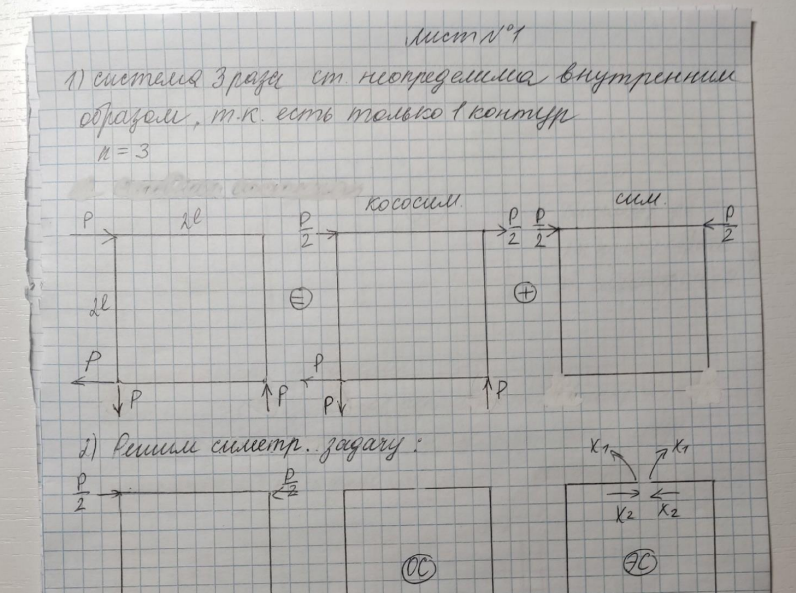 Лист №1
1) система 3 раза ст. неопределима внутренним
образом, т.к. есть только 1 контур
n = 3
P 2l P/2 кососим. P/2 P/2 сим. P/2
2l = +
P P
P P P P
2) Решим симетр. задачу:
X1 X1
P/2 P/2
X2 X2
ОС ЭС